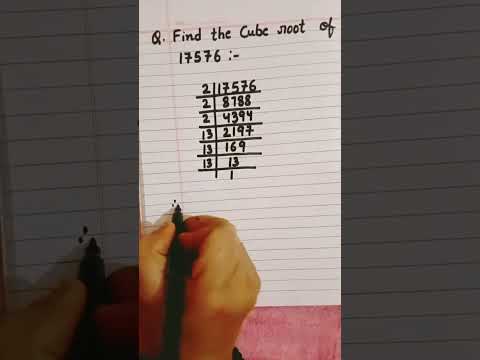 Q. Find the Cube root of
17576 :-
2 17576
2 8788
2 4394
13 2197
13 169
13 13
1
∴